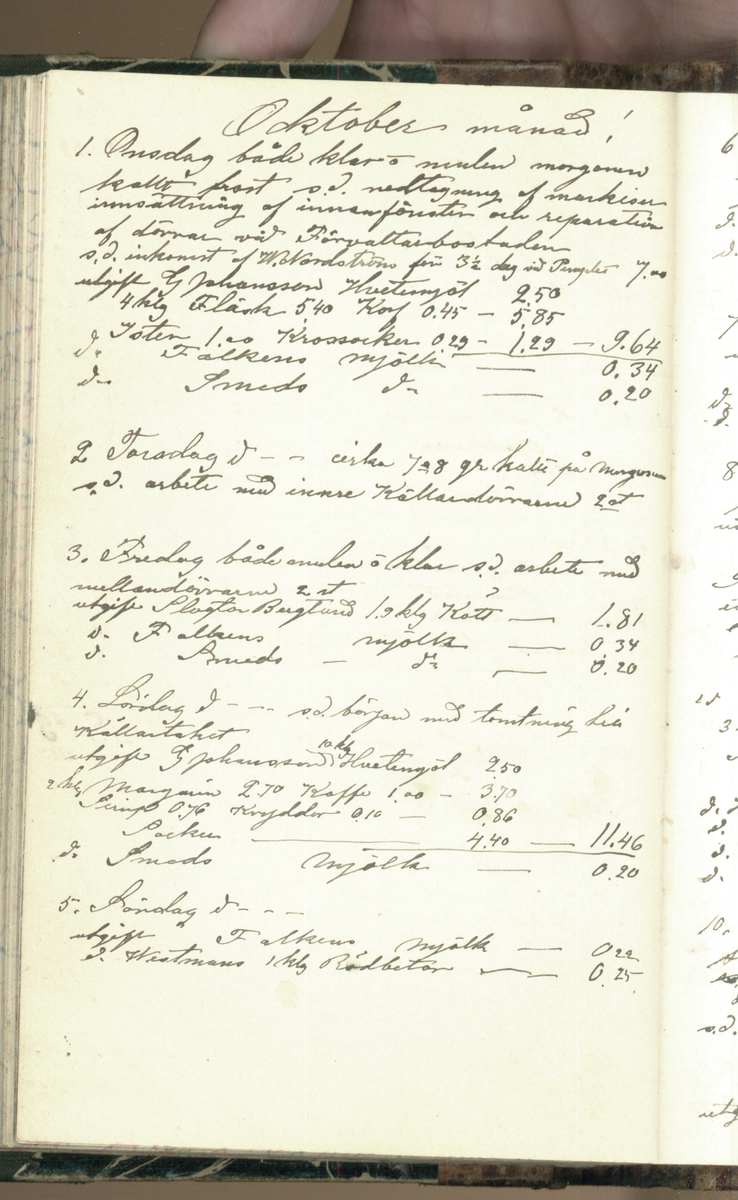 Oktober månad!
1. Onsdag både klar o mulen morgonen
kallt frost s.d. nedtagning af markiser
innsättning af innanfönster och reparation
af dörrar vid Förvaltarbostaden
s.d. inkomst af W. Nordström för 3½ dag vid 7.00
utgift G Johansson Hvetemjöl 2.50
4 klg Fläsk 5.40 Korf 0.45 — 5.85
Ister 1.00 Krossocker 0.29 - 1.29 — 9.64
d:o Falkens mjölk — 0.34
d:o Smeds d:o — 0.20
2 Torsdag d - - cirka 7 a 8 gr kallt på Morgonen
s.d. arbete med innre Källardörrarne 2 st
3. Fredag både mulen o klar s.d. arbete med
mellandörrarne 2 st
utgift Slagtar Berglund 1.9 klg Kött — 1.81
d:o Falkens mjölk — 0.34
d:o Smeds — d:o — 0.20
4. Lördag d - - - s.d. börjar med
Källartaket
utgift G Johansson 10 klg Hvetemjöl 2.50
2 klg Margarin 2.70 Kaffe 1.00 — 3.70
Sirup 0.76 Kryddor 0.10 — 0.86
Socker — 4.40 — 11.46
d:o Smeds Mjölk — 0.20
5. Söndag d - - -
utgift Falkens mjölk — 0.22
d. Westmans 1 klg Rödbetor — 0.25